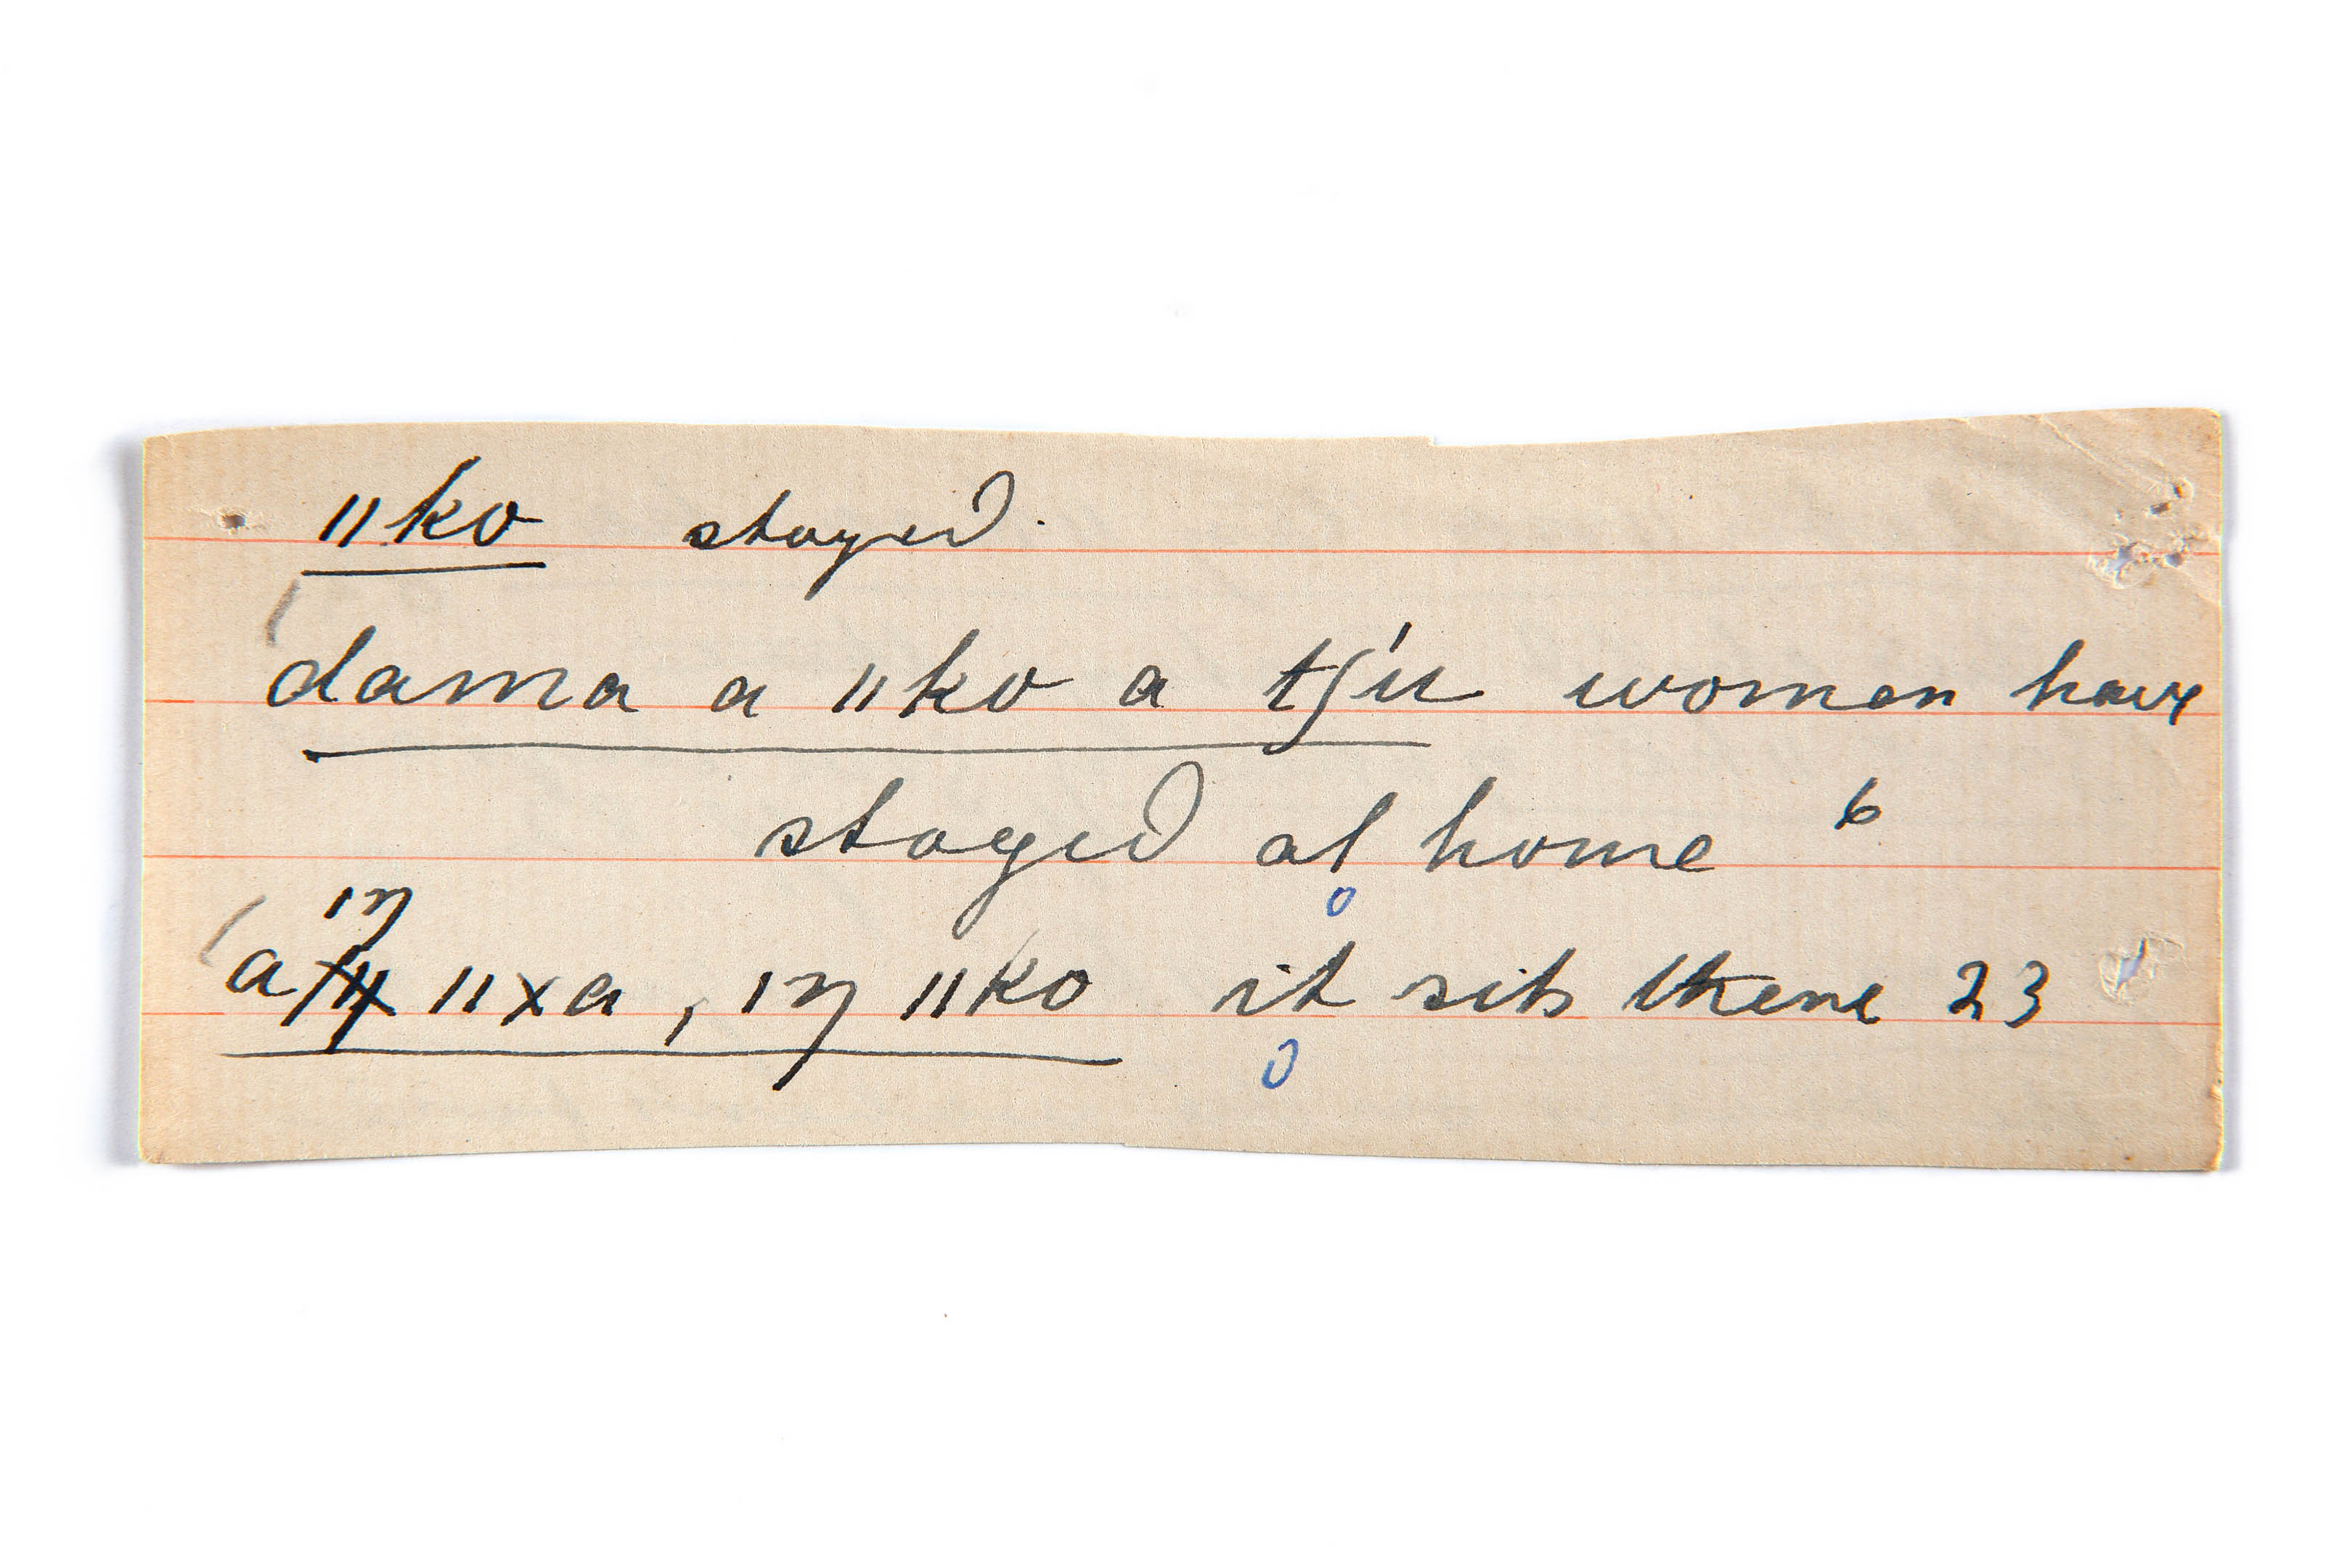 ǁko stayed.
dama a ǁko a tʃ'u women have
stayed at home 6
ıŋ
a ǁxa, ıŋ ǁko it sits there 23